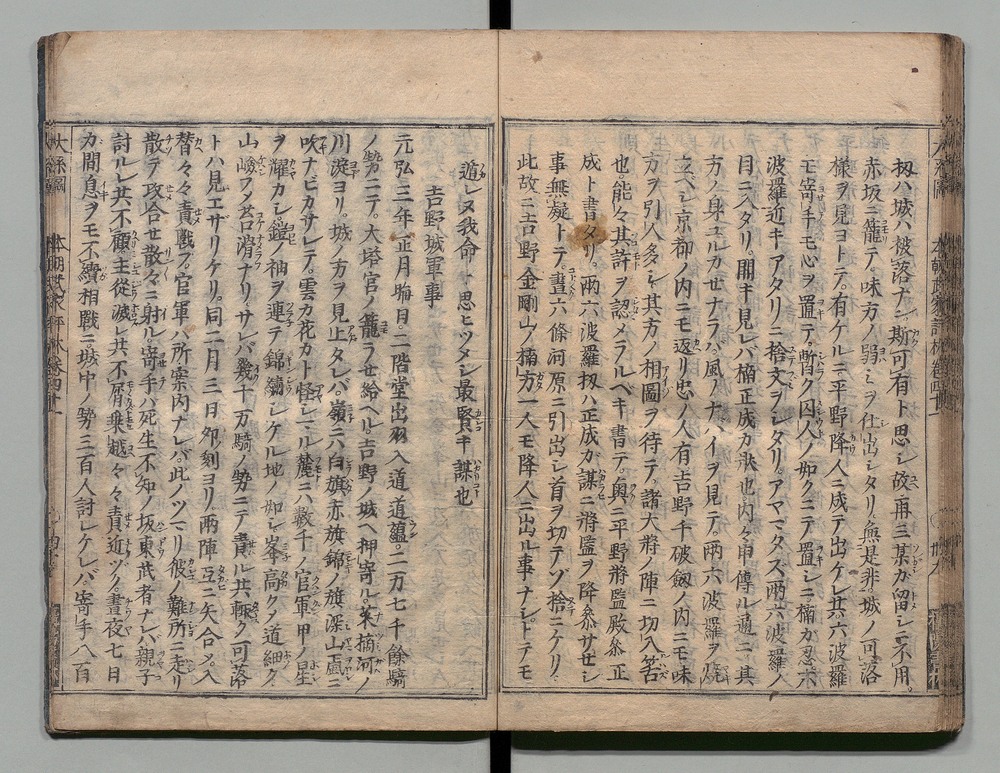 扨ハ城ハ被落ナン斯可有ト思シ故再三某ガ留シニ不用
赤坂ニ籠テ味方ノ弱ミヲ仕出シタリ無是非城ノ可落
様ヲ見ヨトテ有ケルニ平野降人ニ成テ出ケレ共六波羅
モ寄手モ心ヲ置テ暫ク囚人ノ如クニテ置シニ楠カ忍六
波羅近キアタリニ捨文ヲシタリアヤマタズ兩六波羅ノ
目ニ入タリ開キ見レバ楠正成カ状也内々申傳ル通ニ其
方ノ身ユルカセナラバ風ノナイヲ見テ兩六波羅ヲ焼
立ベシ京都ノ内ニモ返リ忠ノ人有吉野千破劔ノ内ニモ味
方ヲ引人多シ其方ノ相圖ヲ待テ諸大將ノ陣ニ切入筈
也能々其許ヲ認メラルベキ書テ奥ニ平野將監殿泰正
成ト書タリ兩六波羅扨ハ正成が謀ニ將監ヲ降参サセシ
事無疑トテ晝六條河原ニ引出シ首ヲ切テゾ捨ニケリ
此故ニ吉野金剛山ノ楠方一人モ降人ニ出ル事ナシトテモ
遁レヌ我命ト思ヒツメシ最賢キ謀也
吉野城軍事
元弘三年正月晦日二階堂出羽入道道蘊二万七千餘騎
ノ勢ニテ大塔宮ノ籠ラセ給ヘル吉野ノ城ヘ押寄ル菜摘河ノ
川淀ヨリ城ノ方ヲ見上タレバ嶺ニハ白旗赤旗錦ノ旗深山颪ニ
吹ナビカサレテ雲カ花カト怪シマル麓ニハ數千ノ官軍甲ノ星
ヲ耀カシ鎧ノ袖ヲ連テ錦繡シケル地ノ如シ峯高ク道細ク
山嶮フノ苔滑ナリサレバ幾十万騎ノ勢ニテ責ル共輒ク可落
トハ見エザリケリ同二月三日夘刻ヨリ兩陣互ニ矢合メ入
替々々責戰フ官軍ハ所案内ナレバ此ノツマリ彼ノ難所ニ走リ
散テ攻合セ散々ニ射ル寄手ハ死生不知ノ坂東武者ナレバ親子
討ルレ共不顧主從滅レ共不屑乗越々々責近ヅク晝夜七日
カ間息ヲモ不續相戰ニ城中ノ勢三百人討レケレバ寄手八百